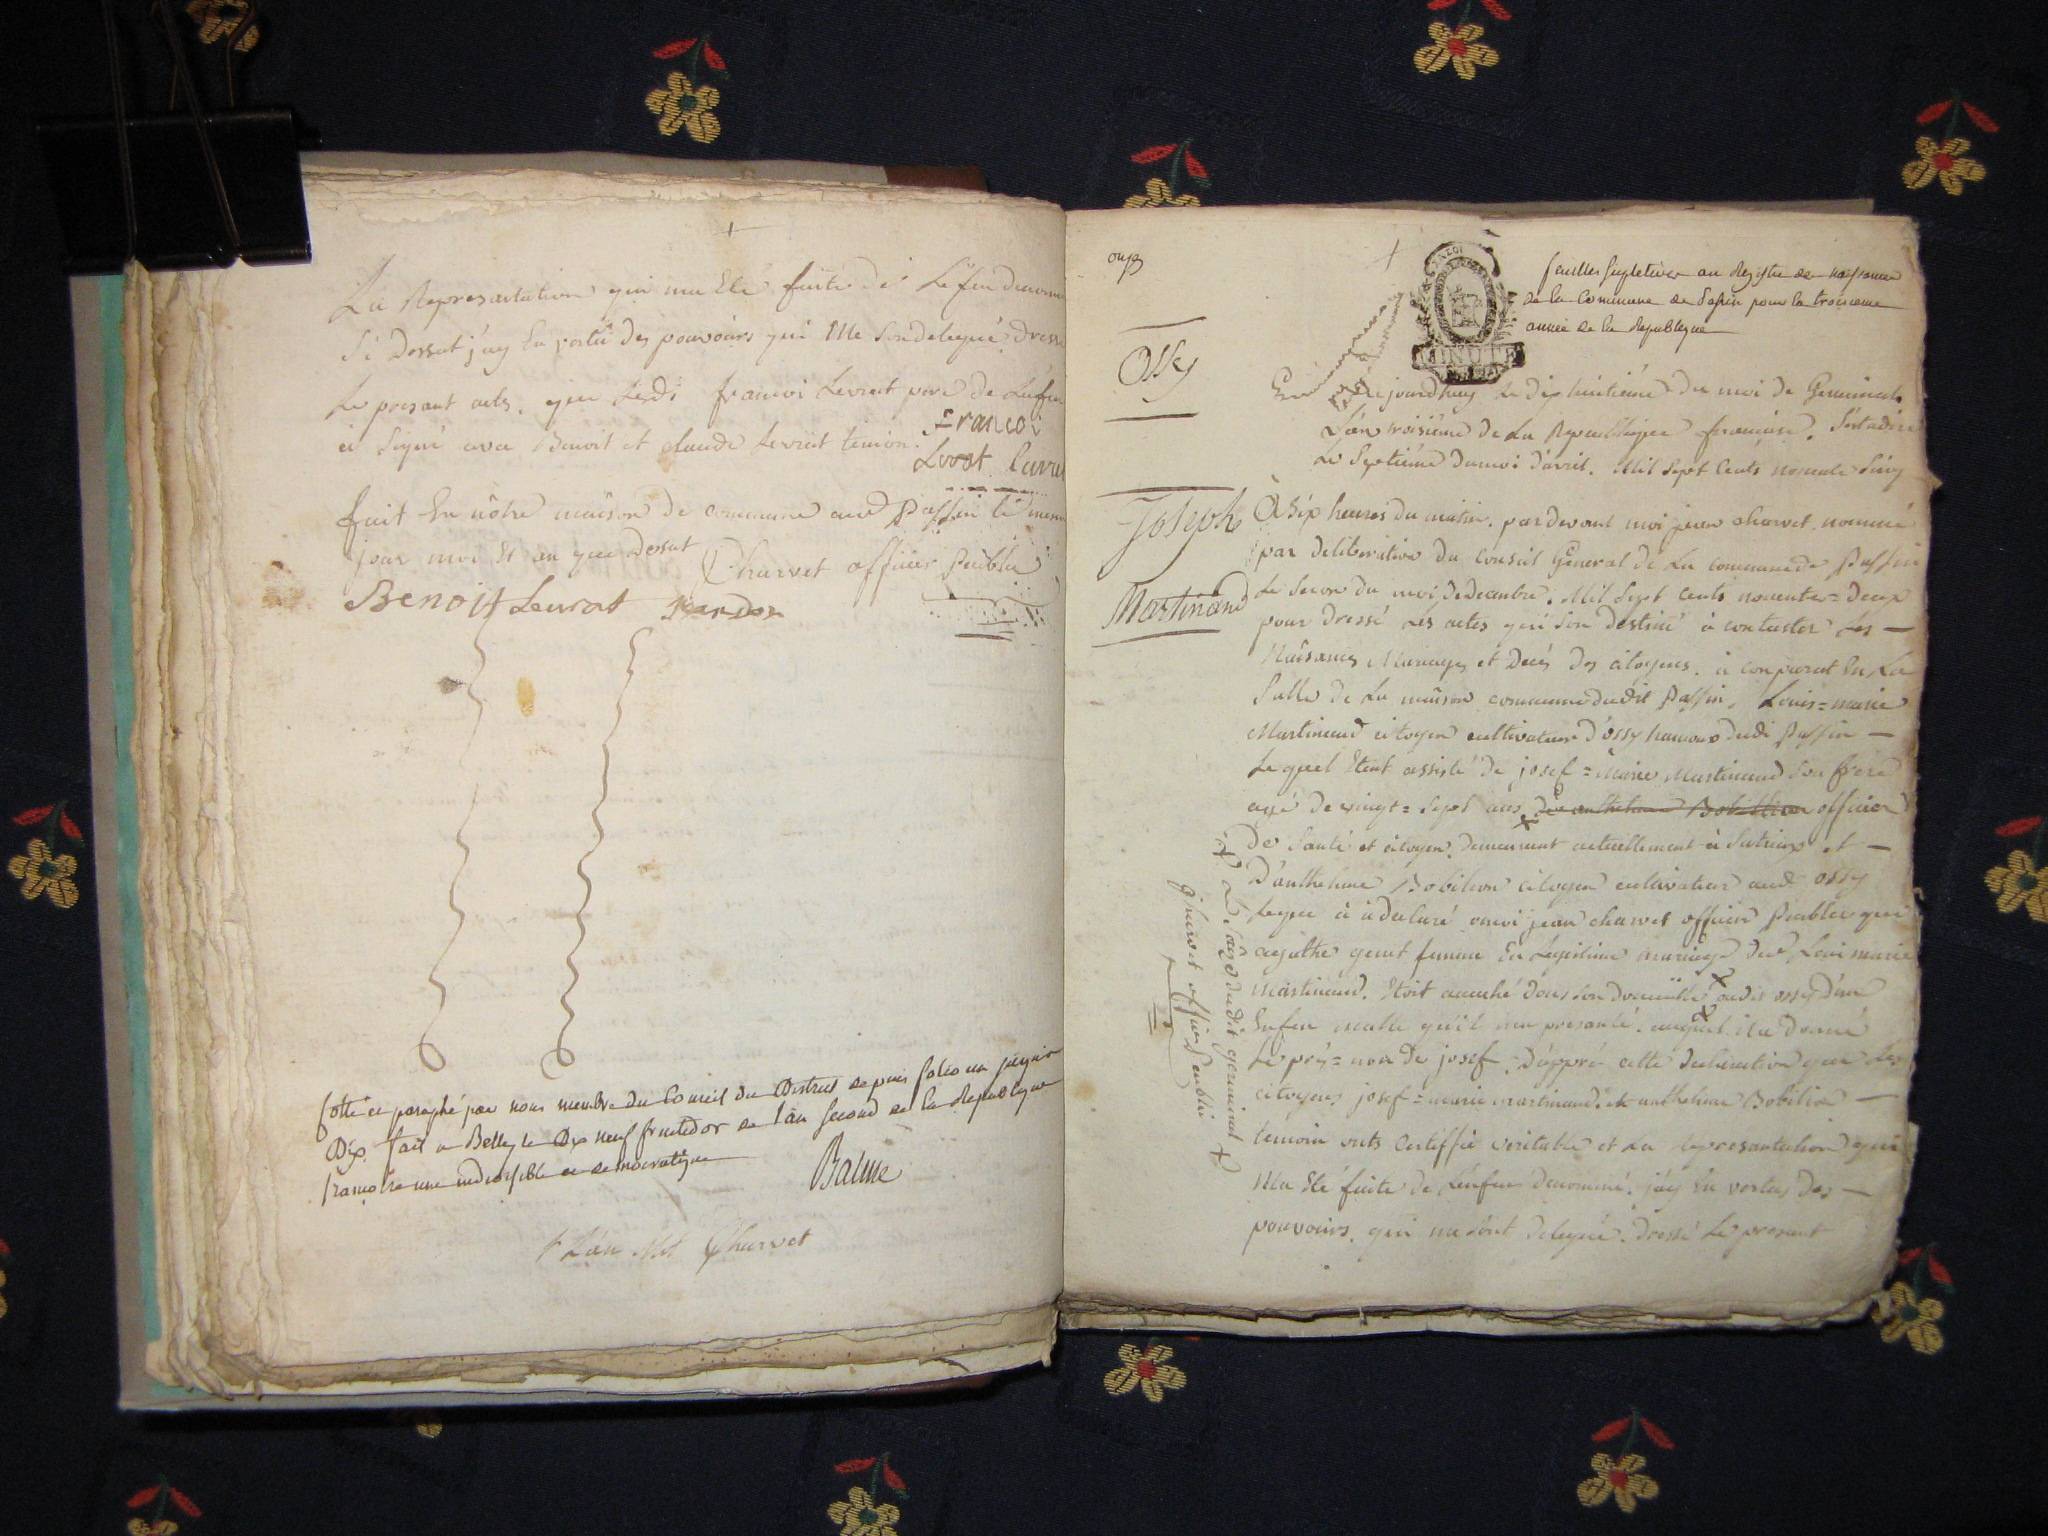 La Representation qui ma Eté faite de Lenfen denomé
Si Dessut j'ay En vertu Des pouvoirs qui Me Son delegué Dressé
Le presant acte. que Ledi francoi Levrat pere de Lenfen
à Signé avec Benoit et claude Levrat temion.
Francoi
Levrat
fait En nôtre maison de commune aud Passin le meme
jour moi Et an que Dessut
Charvet officier Publi
Benoit Levrat
Cotté et paraphé par nous membre du Conseil du District depuis folio un jusqu'a
Dix fait a Belley le Dix neuf fructidor de l'an second de la Republique
francoise une indivisible et democratique
Balme
L'an Charvet
onze
feuilles supletives au Registre de naissance
de la Commune de Passin pour la troisieme
année de la Republique
MINUTE
Ossy
Joseph
Martinand
jourdhuy Le dix huitiéme du moi de Germinal
L'an troisiéme de La Republique francaise. S'est a dire
Le Septiéme du moi d'avril. Mil Sept Cents nonente Sinq
à Six heures du matin. par devant moi jean charvet nommé
par deliberation du Conseil General de La commune de Passin
Le Secon du moi de Decembre. Mil Sept Cents nonente = Deux
pour Dressé Les actes qui Son Destiné à contaster Les —
Naisances Mariages et Decés Des citoyens. à conparut En La
Salle de La maison commune dudit Passin. Louis = marie
Martinand citoyen cultivateur d'ossy hamaux dudi Passin —
Le quel Etent assisté de josef = Marie Martinand Son frere
agé de vingt = Sept ans, de anthelme Bobillion officier
De Santé et citoyen. Demeurant actuellement à Sutrieux et —
D'anthelme Bobilion citoyen cultivateur aud ossy
Lequel à declaré amoi jean charvet officier Publi que
femme En Legitime mariage dud Loui marie
Martinand. Etoit accuché dans Son domicille audit ossy d'un
Enfen malle qu'il ma presanté. auquel il a Donné
Le pré = non De josef. D'appré cette Declaration que Les
citoyens josef = marie martinand. et anthelme Bobilion —
temoin onts Certiffié veritable et La representation qui
Ma Eté faite de Lenfen denommé. j'ay En vertus Des —
pouvoirs. qui me sont delegué. Dressé Le presant
x Le dudit germinal x
charvet officier Publi